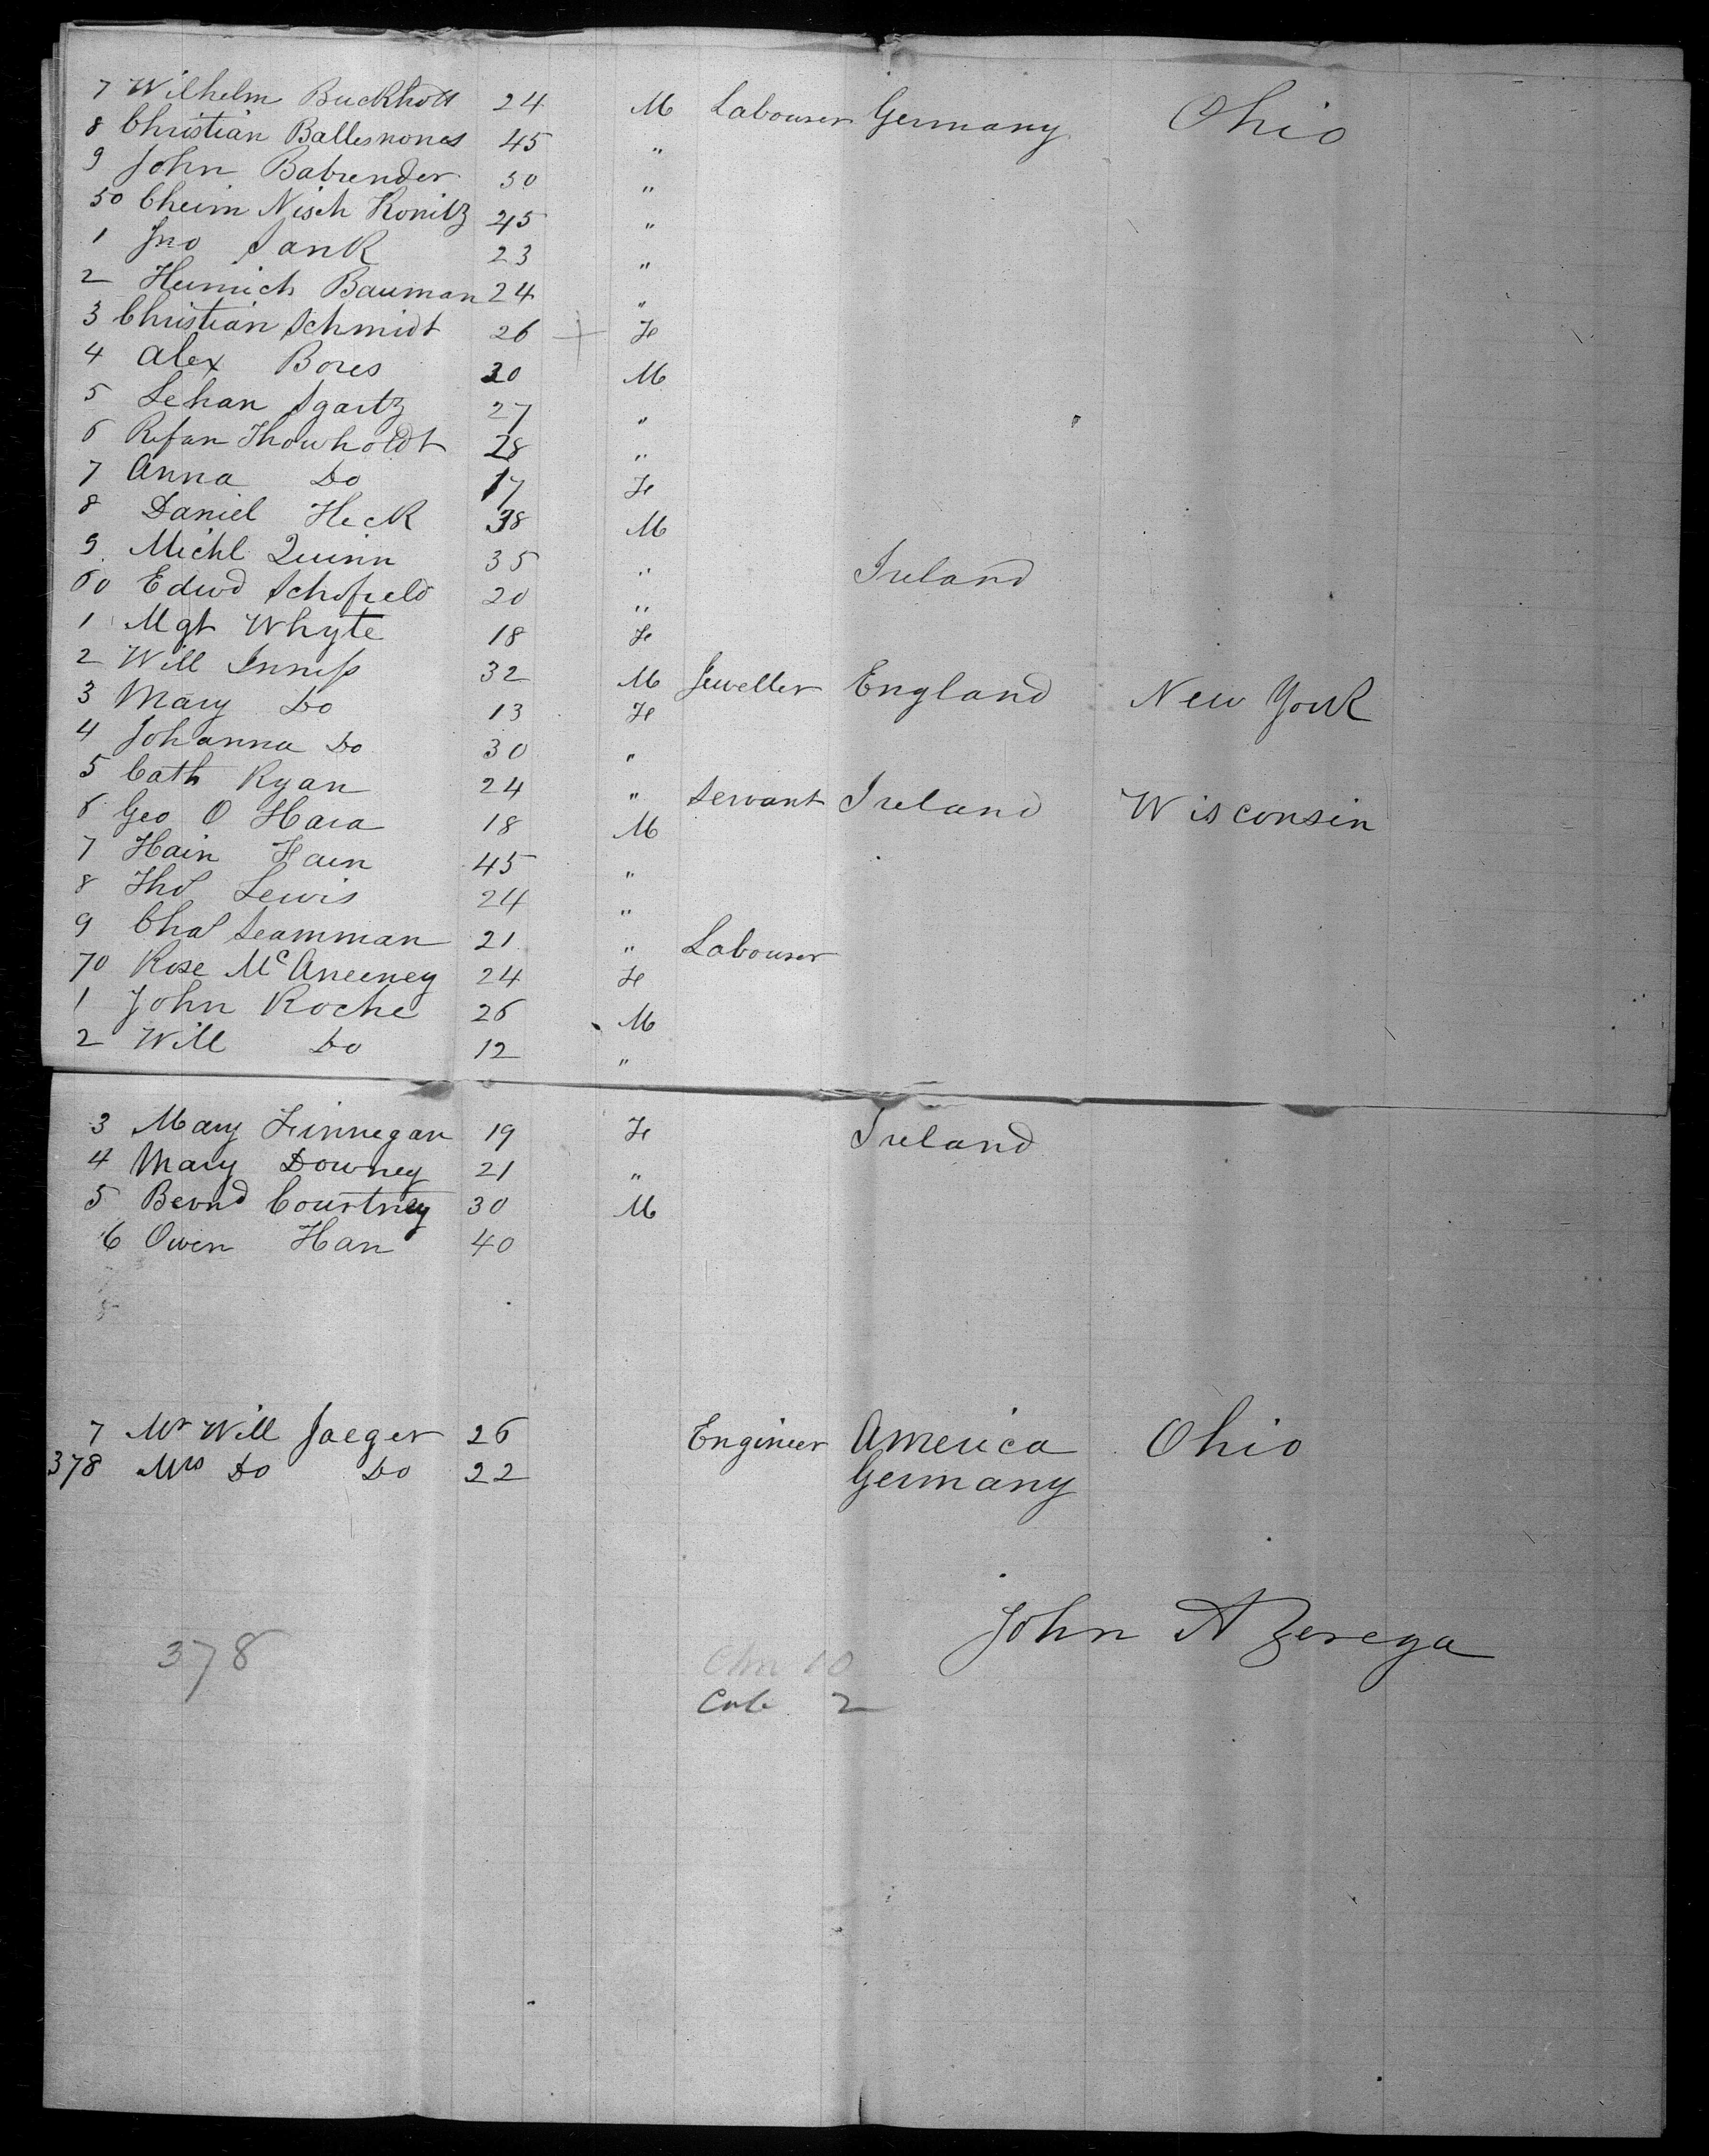 7 Wilhelm Buckholt 24 M Labourer Germany Ohio
8 Christian Ballesnones 45 "
9 John Babrender 30 "
50 Cheim Nisch Konitz 45 "
1 Jno Sank 23 "
2 Heinrich Bauman 24 "
3 Christian Schmidt 26 Fe
4 Alex Bores 30 M
5 Lehan Sgartz 27 "
6 Refan Thowholdt 28 "
7 Anna Do 17 Fe
8 Daniel Heck 38 M
9 Michl Quinn 35 " Ireland
60 Edwd Schofield 20 "
1 Mgt Whyte 18 Fe
2 Will Inniss 32 M Jeweller England New York
3 Mary Do 13 Fe
4 Johanna Do 30 "
5 Cath Ryan 24 " Servant Ireland Wisconsin
6 Geo O Hara 18 M
7 Hain Hain 45 "
8 Thos Lewis 24 "
9 Chas Seamman 21 " Labourer
70 Rose McAneeney 24 Fe
1 John Roche 26 M
2 Will Do 12 "
3 Mary Finnegan 19 Fe Ireland
4 Mary Downey 21 "
5 Bernd Courtney 30 M
6 Owen Han 40
7 Mr Will Jaeger 26 Engineer America Ohio
378 Mrs Do Do 22 Germany
John A Zerega
378
10
Cab 2